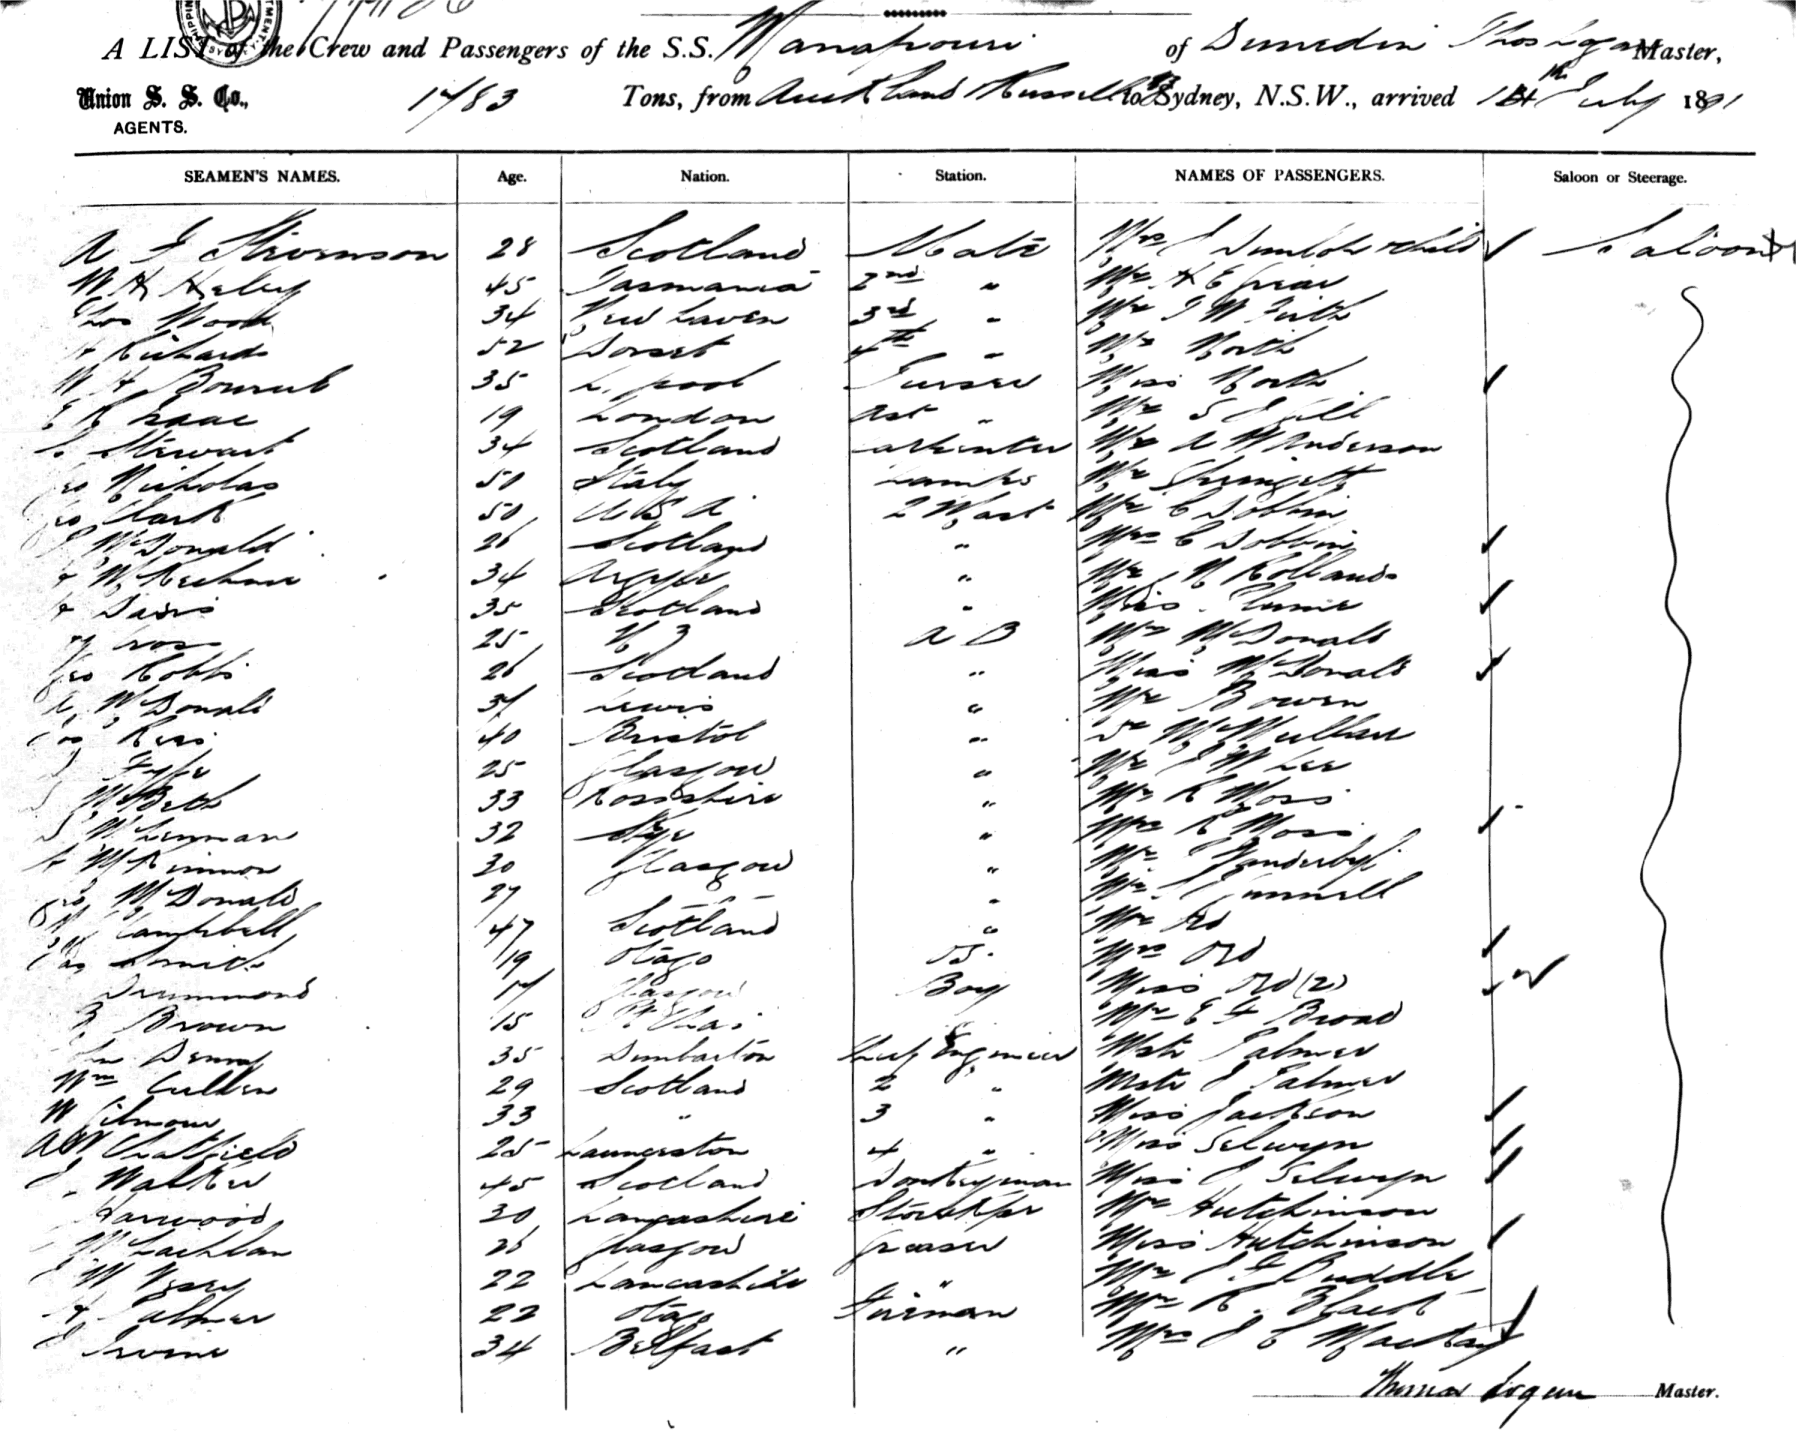 A LIST of the Crew and Passengers of the S.S. Manapouri of Dunedin Thos Logan Master,
Union S. S. Co., 1783 Tons, from Auckland Russell to Sydney, N.S.W., arrived July 1891
AGENTS.
SEAMEN'S NAMES. Age. Nation. Station. NAMES OF PASSENGERS. Saloon or Steerage.
A J Stevenson 28 Scotland Mate Mrs J Dunlop & child Saloon
W H Haley 45 Tasmania 2nd " Mr H E
Thos Wood 34 New haven 3rd " Mr J W Firth
Richards 52 Dorset 4th " Mr North
W H 35 L. pool Purser Miss North
E R Isaac 19 London Ast " Mr S J Gill
Stewart 34 Scotland Carpenter Mr A W Anderson
Geo Nicholas 50 Italy Lamps Mr
Geo Clark 50 U S A 2 Mast Mr C Dobbin
McDonald 26 Scotland " Mrs C Dobbin
McKechnie 34 Argyle " Mr N Rolland
Davis 35 Scotland " Miss
Cross 25 N Z A B Mrs McDonald
Geo Robb 26 Scotland " Miss McDonald
A McDonald 37 Lewis " Mr Bowen
Ross 40 Bristol " Dr McMullan
Fyfe 25 Glasgow " Mr J W Lee
McBeth 33 Rossshire " Mr R Moss
McLennan 32 Skye " Mrs R Moss
McKinnon 30 Glasgow " Mr Vanderbyl
Geo McDonald 27 " " Mr J Gunnell
Campbell 47 Scotland " Mr Ord
Smith 19 Otago O.S. Mrs Ord
Drummond 17 Glasgow Boy Miss Ord (2)
Brown 15 Mr E F Broad
Denny 35 Dumbarton Chief Engineer Mstr Palmer
Wm Cullen 29 Scotland 2 " Mstr J Palmer
W Gilmour 33 " 3 " Miss Jackson
A W Chatfield 25 Launceston 4 " Miss Selwyn
J. Walker 45 Scotland Donkeyman Miss J Selwyn
Harwood 30 Lancashire Storekpr Mrs Hutchinson
McLachlan 26 Glasgow Greaser Miss Hutchinson
22 Lancashire " Mr J F Buddle
Palmer 22 Otago Fireman Mr R.
J Irvine 34 Belfast " Mrs J C MacKay
Thomas Logan Master.